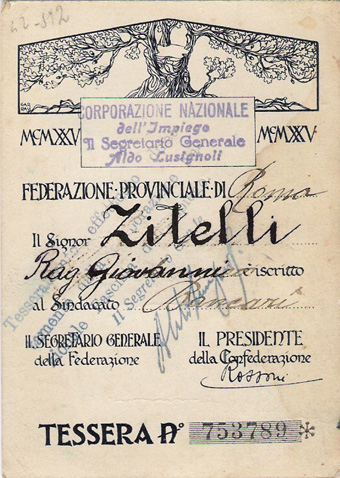 CORPORAZIONE NAZIONALE
dell'Impiego
Il Segretario Generale
Aldo Lusignoli
MCMXXV MCMXXV
FEDERAZIONE·PROVINCIALE·DI Roma
Il Signor Zitelli
Rag. Giovanni è inscritto
al Sindacato Bancari
IL SEGRETARIO GENERALE
della Federazione
IL PRESIDENTE
della Confederazione
Rossoni
TESSERA No 753789